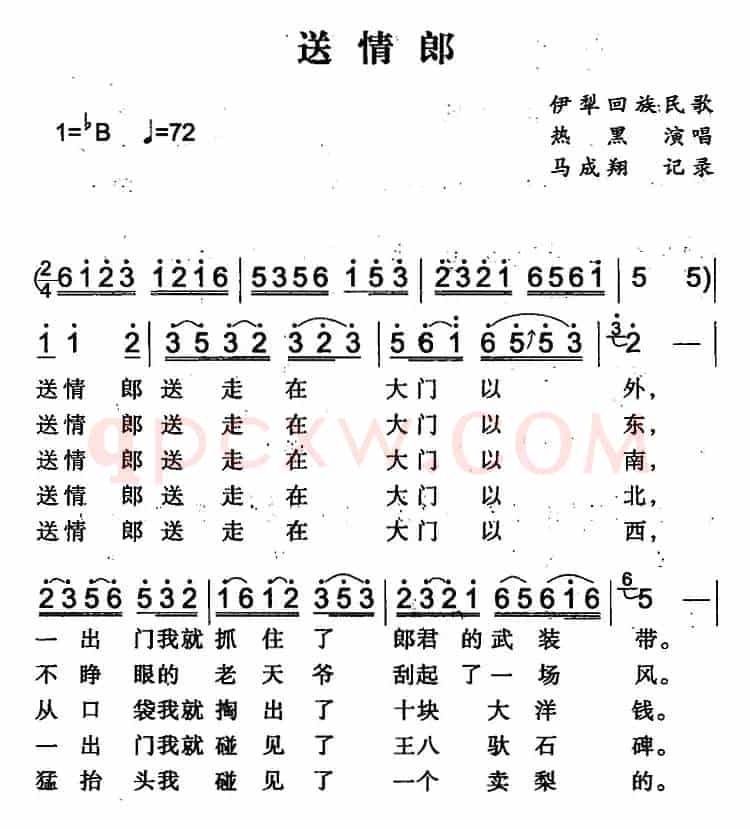 送情郎
伊犁回族民歌
1=♭B ♩=72
热黑 演唱
马成翔 记录
(2/4 6123 1216 | 5356 153 | 2321 6561 | 5 5)
1 1 2 | 3532 323 | 561 5553 | 3 2 —
送情郎送走在大门以外，
送情郎送走在大门以东，
qpcxw.COM
送情郎送走在大门以南，
送情郎送走在大门以北，
送情郎送走在大门以西，
2356 532 | 1612 353 | 2321 6561 6 | 6 5 —
一出门我就抓住了郎君的武装带。
不睁眼的老天爷刮起了一场风。
从口袋我就掏出了十块大洋钱。
一出门我就碰见了王八驮石碑。
猛抬头我碰见了一个卖梨的。